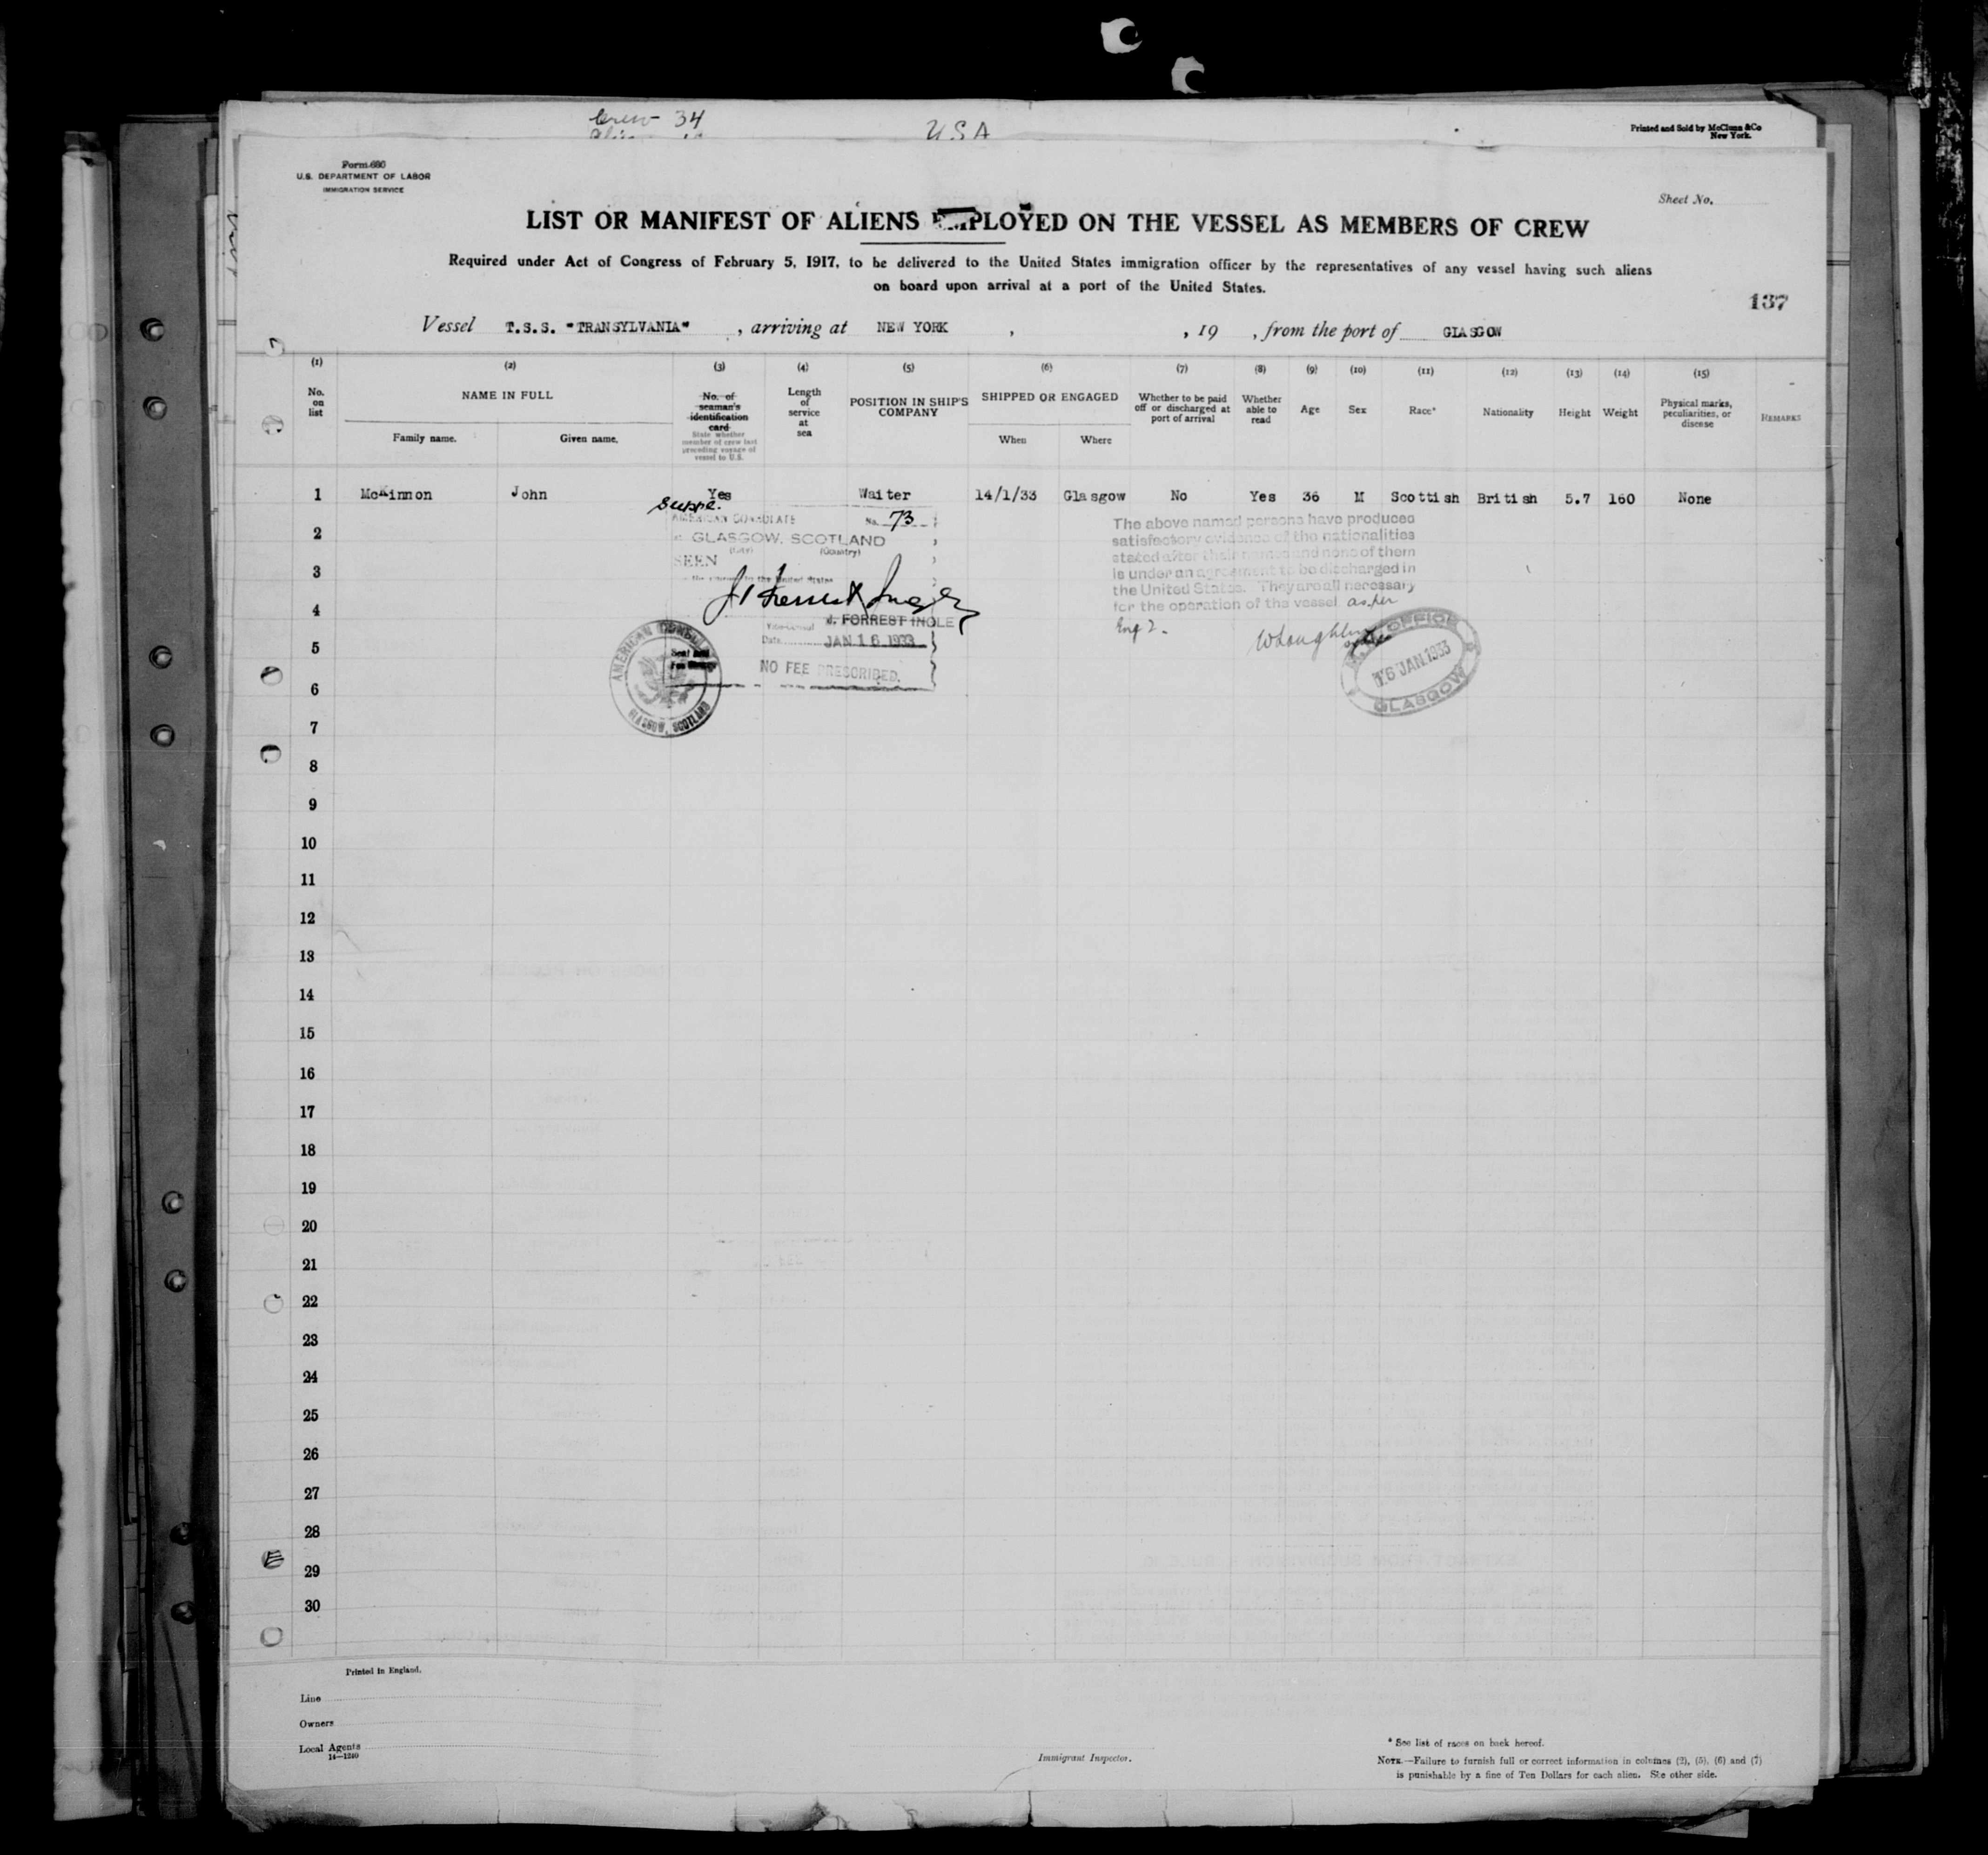 Crew 34
USA
Printed and Sold by McClunn & Co
New York.
Form 680
U.S. DEPARTMENT OF LABOR
IMMIGRATION SERVICE
Sheet No.
LIST OR MANIFEST OF ALIENS EMPLOYED ON THE VESSEL AS MEMBERS OF CREW
Required under Act of Congress of February 5, 1917, to be delivered to the United States immigration officer by the representatives of any vessel having such aliens
on board upon arrival at a port of the United States.
137
Vessel T.S.S. "TRANSYLVANIA", arriving at NEW YORK , , 19 , from the port of GLASGOW
(1) (2) (3) (4) (5) (6) (7) (8) (9) (10) (11) (12) (13) (14) (15)
No. on list
NAME IN FULL
Family name. Given name.
No. of seaman's identification card
State whether member of crew last preceding voyage of vessel to U.S.
Length of service at sea
POSITION IN SHIP'S COMPANY
SHIPPED OR ENGAGED
When Where
Whether to be paid off or discharged at port of arrival
Whether able to read
Age
Sex
Race*
Nationality
Height
Weight
Physical marks, peculiarities, or disease
REMARKS
1 McKinnon John Yes Waiter 14/1/33 Glasgow No Yes 36 M Scottish British 5.7 160 None
Suppl.
AMERICAN CONSULATE No. 73
GLASGOW, SCOTLAND
(City) (Country)
SEEN
J. FORREST INGLE
Vice-Consul
Date JAN 16 1933
NO FEE PRESCRIBED.
AMERICAN CONSULATE
GLASGOW, SCOTLAND
The above named persons have produced
satisfactory evidence of the nationalities
stated after their names and none of them
is under an agreement to be discharged in
the United States. They are all necessary
for the operation of the vessel as per
Eng 2.
OFFICE
16 JAN 1933
GLASGOW
2
3
4
5
6
7
8
9
10
11
12
13
14
15
16
17
18
19
20
21
22
23
24
25
26
27
28
29
30
Printed in England.
Line
Owners
Local Agents
14—1240
Immigrant Inspector.
* See list of races on back hereof.
NOTE.—Failure to furnish full or correct information in columns (2), (5), (6) and (7)
is punishable by a fine of Ten Dollars for each alien. See other side.